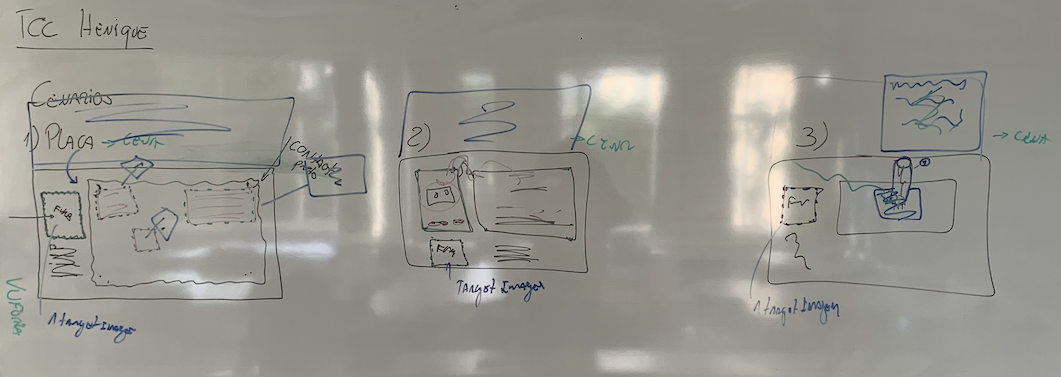 TCC Henique
Cenarios
1) PLACA → CENA
CONTADOR
FURG
VUFORIA
1 target Image
2)
→ CENA
FURG
Target Images
3)
→ CENA
Fu
1 target Image